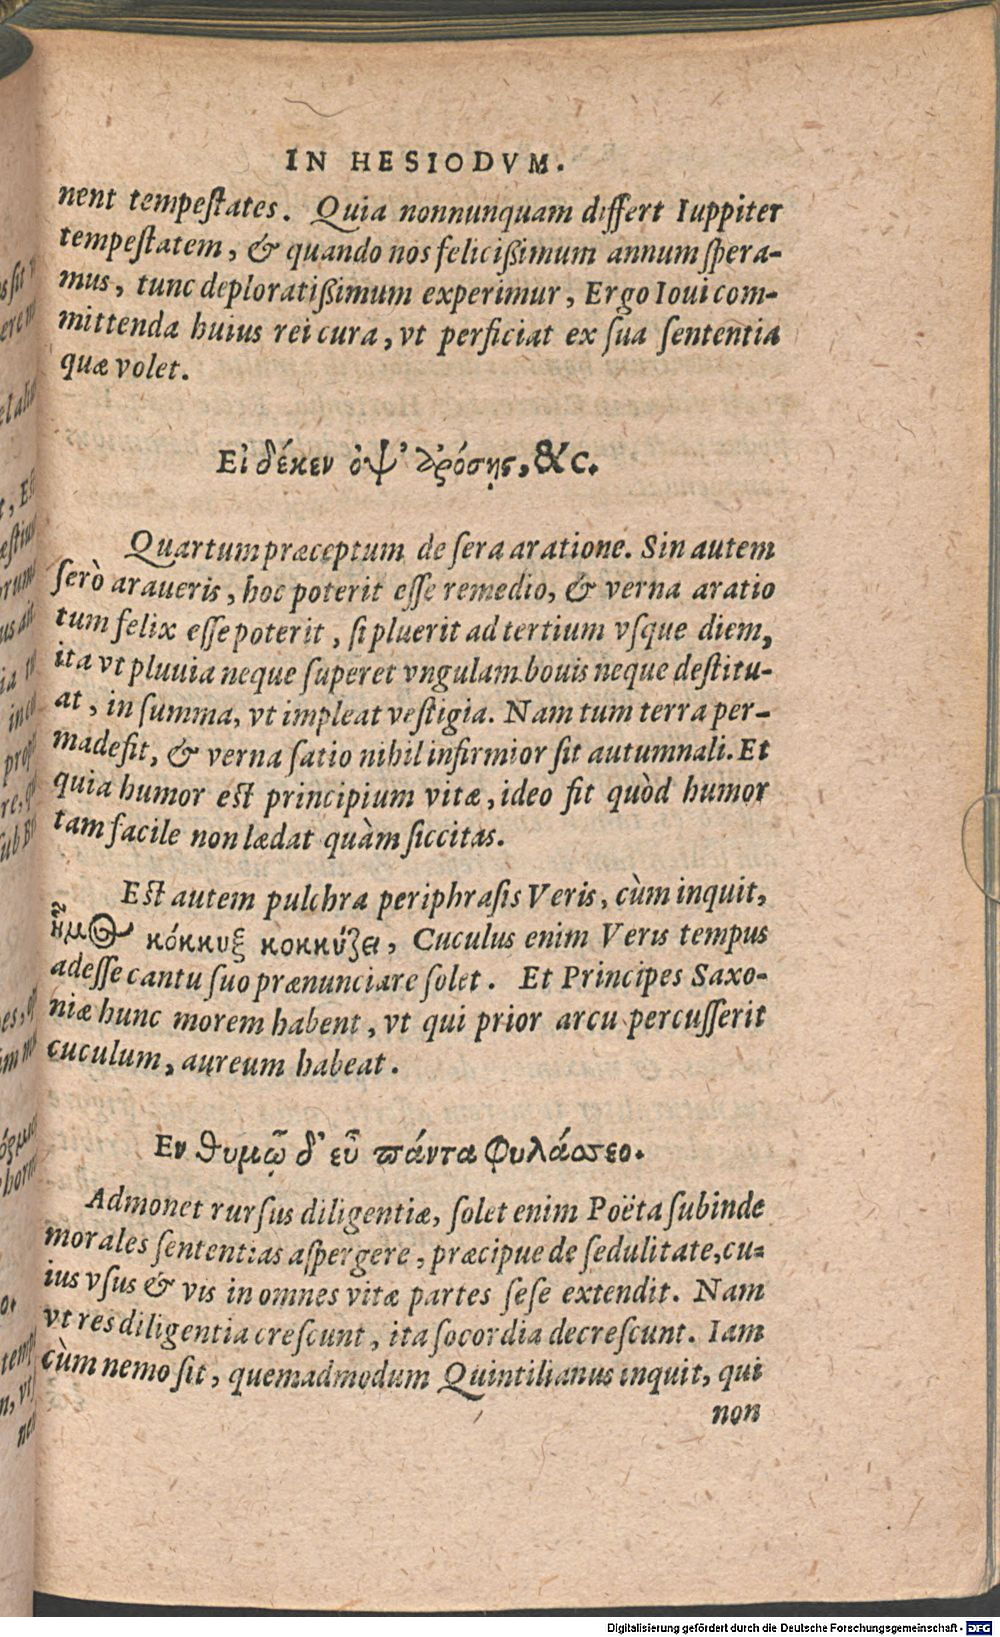 IN HESIODVM.
nent tempeſtates. Quia nonnunquam differt Iuppiter
tempeſtatem, & quando nos felicißimum annum ſpera-
mus, tunc deploratißimum experimur, Ergo Ioui com-
mittenda huius rei cura, vt perficiat ex ſua ſententia
quæ volet.
Εἰ δέκεν ὀψ’ ἀρόσῃς, &c.
Quartum præceptum de ſera aratione. Sin autem
ſerò araueris, hoc poterit eſſe remedio, & verna aratio
tum felix eſſe poterit, ſi pluerit ad tertium vſque diem,
ita vt pluuia neque ſuperet vngulam bouis neque deſtitu-
at, in ſumma, vt impleat veſtigia. Nam tum terra per-
madeſit, & verna ſatio nihil infirmior ſit autumnali. Et
quia humor eſt principium vitæ, ideo fit quòd humor
tam facile non lædat quàm ſiccitas.
Eſt autem pulchra periphraſis Veris, cùm inquit,
ἦμος κόκκυξ κοκκύζει, Cuculus enim Veris tempus
adeſſe cantu ſuo prænunciare ſolet. Et Principes Saxo-
niæ hunc morem habent, vt qui prior arcu percuſſerit
cuculum, aureum habeat.
Εν θυμῷ δ’ εὖ πάντα φυλάσσεο.
Admonet rurſus diligentiæ, ſolet enim Poëta ſubinde
morales ſententias aſpergere, præcipue de ſedulitate, cu-
ius vſus & vis in omnes vitæ partes ſeſe extendit. Nam
vt res diligentia creſcunt, ita ſocordia decreſcunt. Iam
cùm nemo ſit, quemadmodum Quintilianus inquit, qui
non
Digitalisierung gefördert durch die Deutsche Forschungsgemeinschaft - DFG